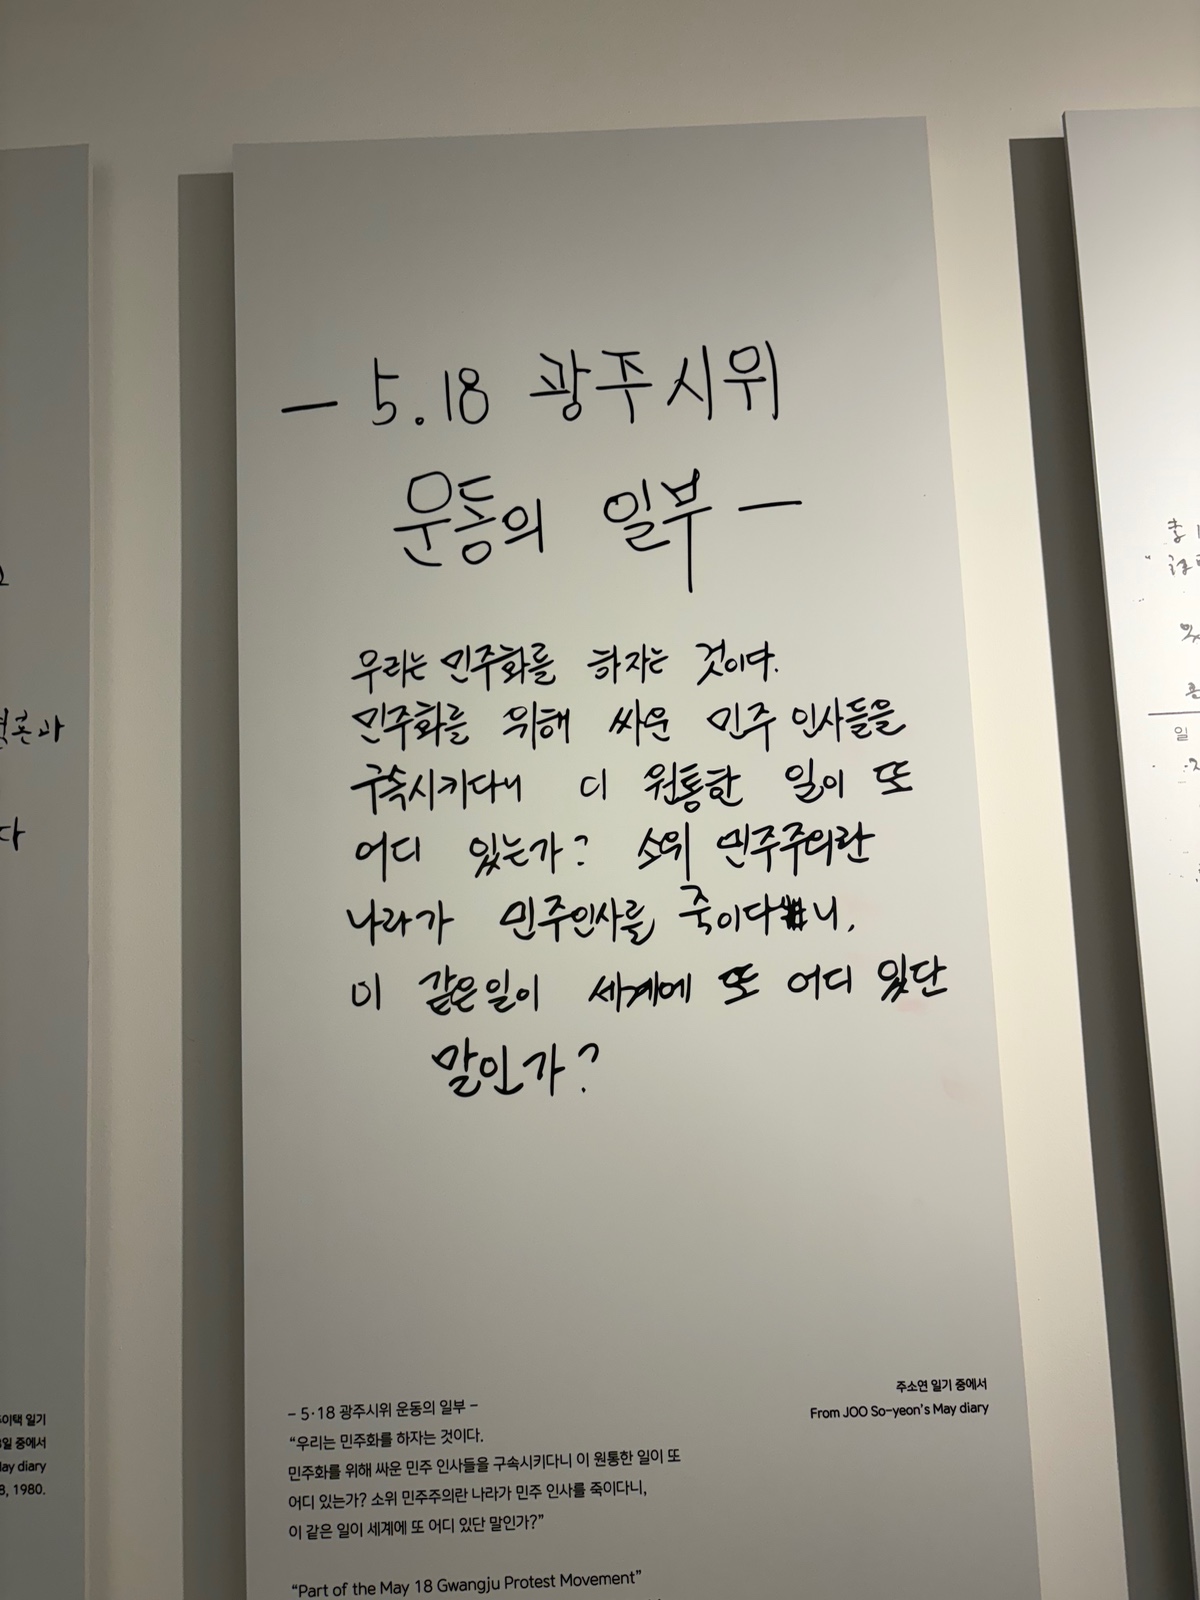 - 5.18 광주시위
운동의 일부 -
우리는 민주화를 하자는 것이다.
민주화를 위해 싸운 민주 인사들을
구속시키다니 이 원통한 일이 또
어디 있는가? 소위 민주주의란
나라가 민주인사를 죽이다니,
이 같은 일이 세계에 또 어디 있단
말인가?
주소연 일기 중에서
From JOO So-yeon's May diary
- 5·18 광주시위 운동의 일부 -
“우리는 민주화를 하자는 것이다.
민주화를 위해 싸운 민주 인사들을 구속시키다니 이 원통한 일이 또
어디 있는가? 소위 민주주의란 나라가 민주 인사를 죽이다니,
이 같은 일이 세계에 또 어디 있단 말인가?”
“Part of the May 18 Gwangju Protest Movement”
일기
중에서
diary
1980.
일